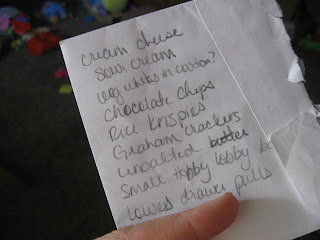 cream cheese
sour cream
egg whites in carton?
chocolate chips
Rice Krispies
Graham crackers
unsalted butter
Small Hobby lobby
lowes drawer pulls